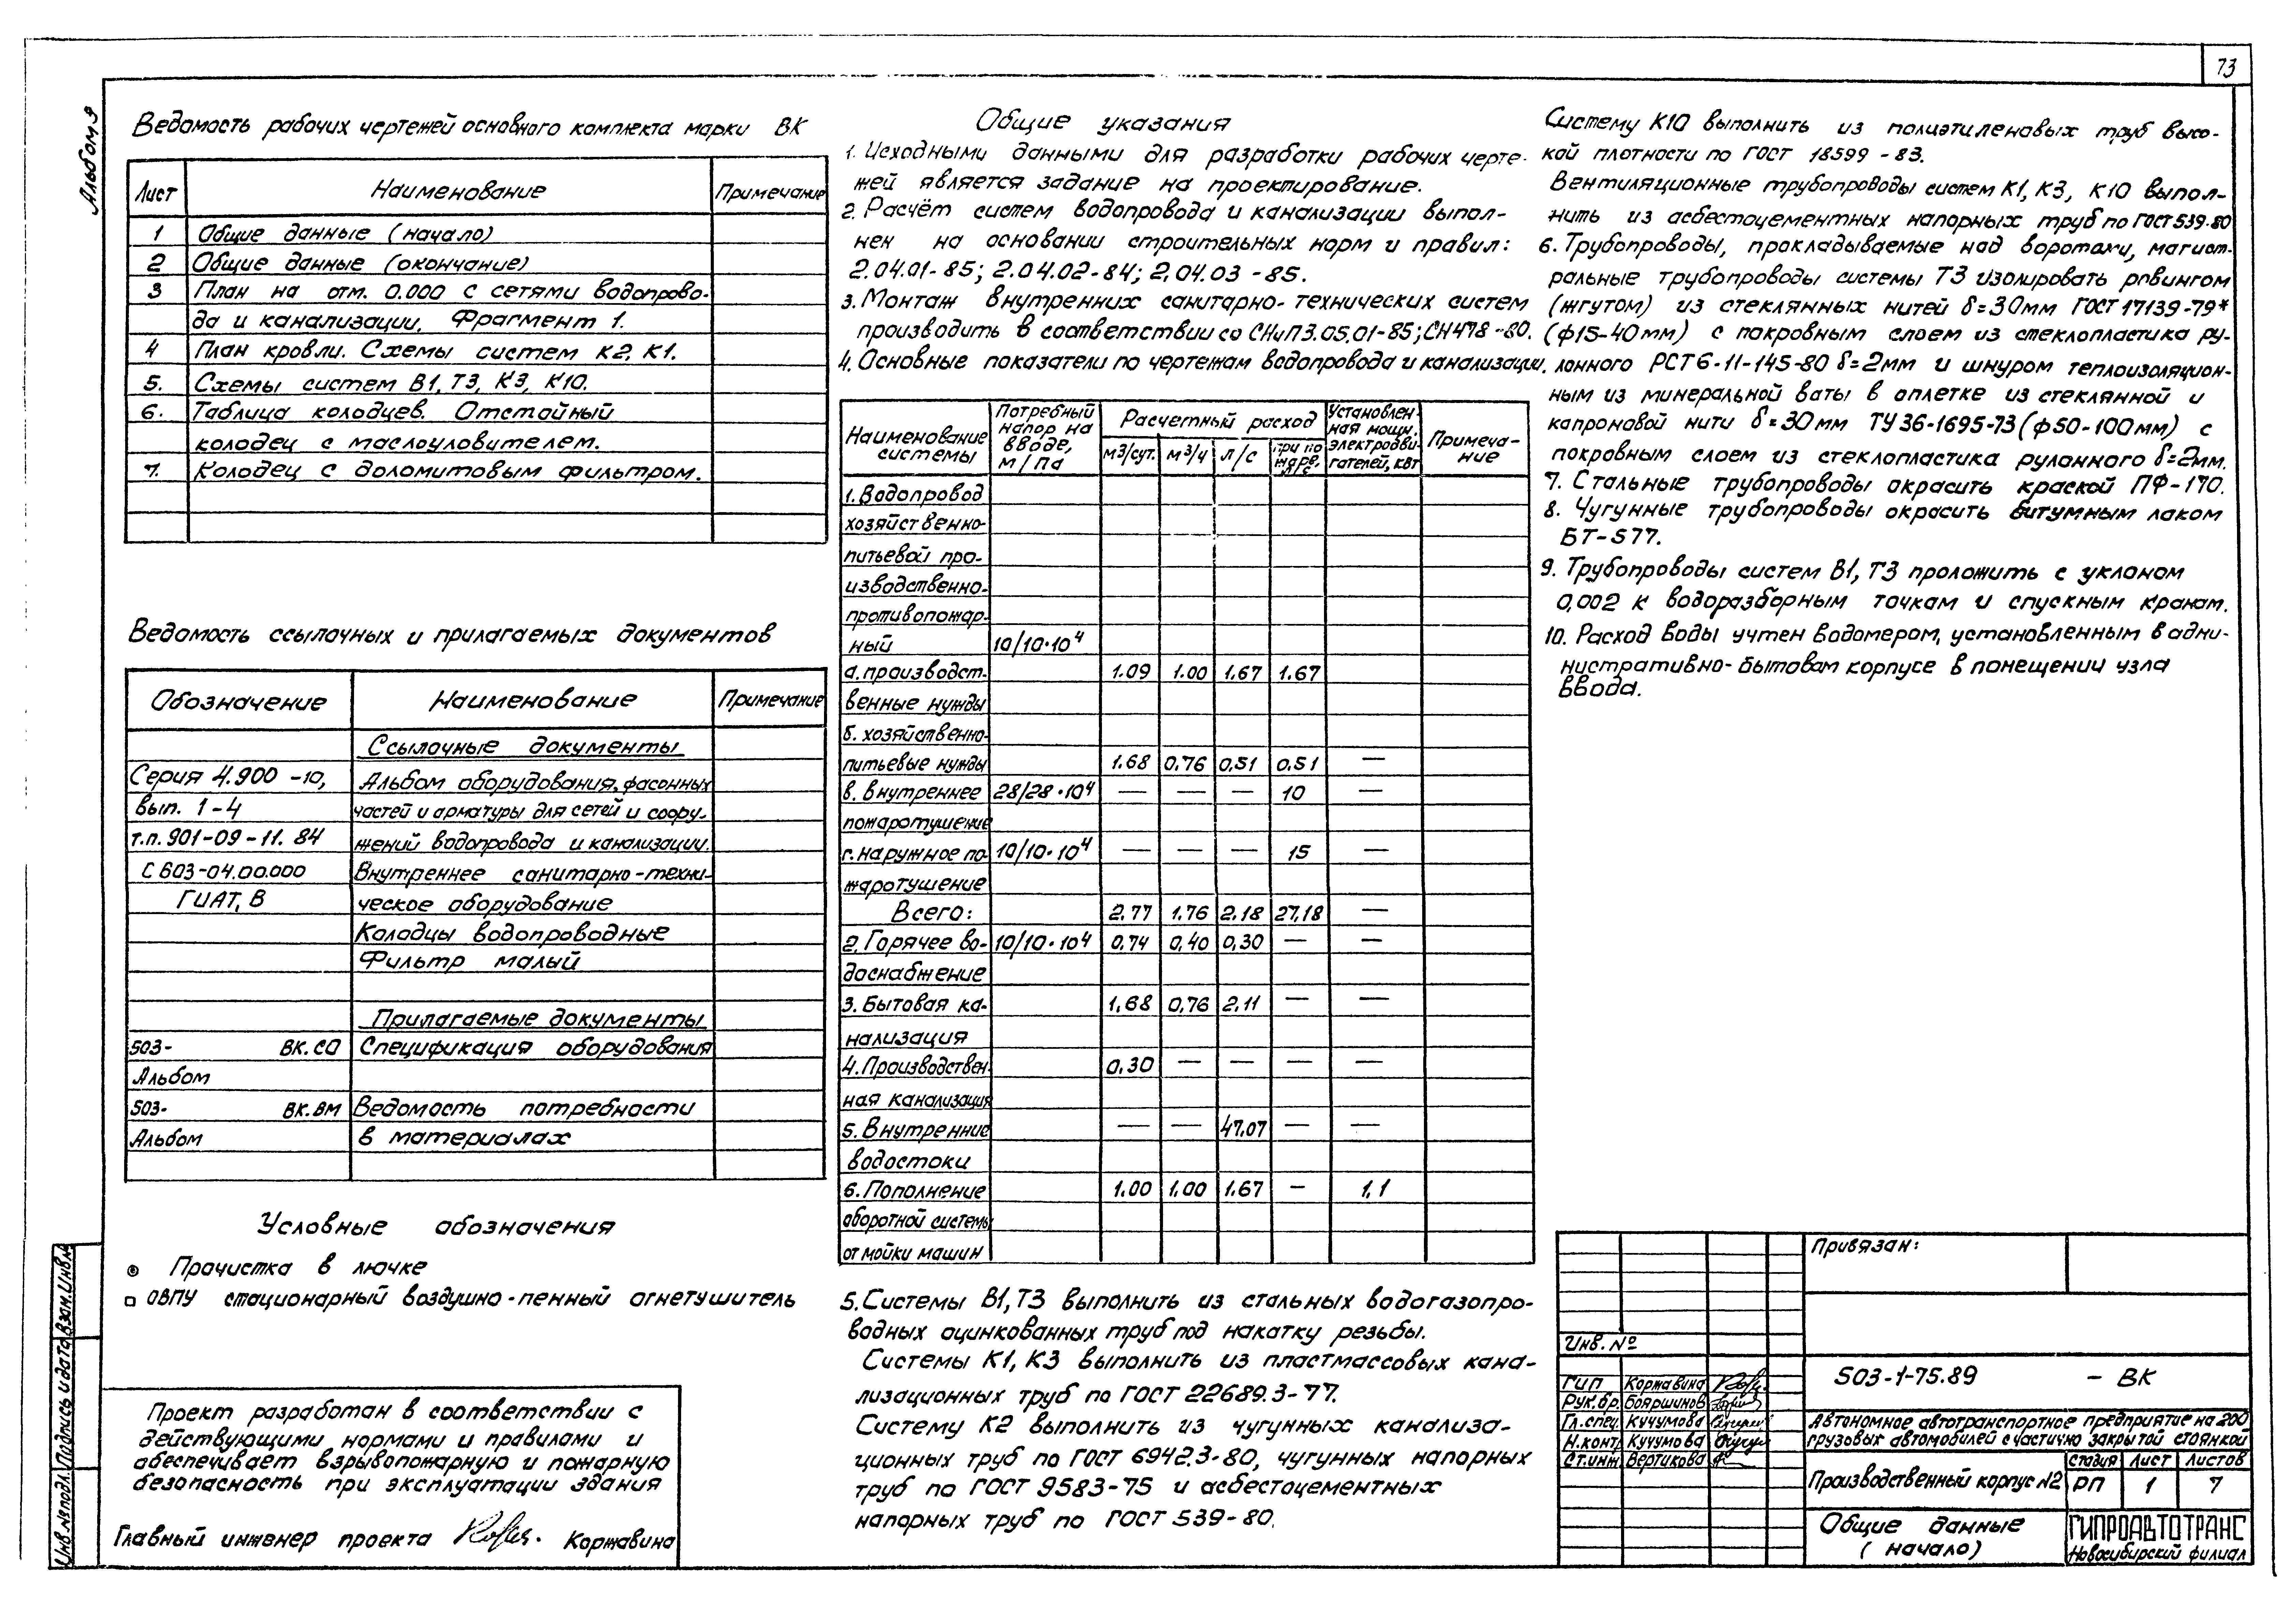 73
Альбом 9
Ведомость рабочих чертежей основного комплекта марки ВК
Лист Наименование Примечание
1 Общие данные (начало)
2 Общие данные (окончание)
3 План на отм. 0.000 с сетями водопрово-
да и канализации. Фрагмент 1.
4 План кровли. Схемы систем К2, К1.
5. Схемы систем В1, Т3, К3, К10.
6. Таблица колодцев. Отстойный
колодец с маслоуловителем.
7. Колодец с доломитовым фильтром.
Ведомость ссылочных и прилагаемых документов
Обозначение Наименование Примечание
Ссылочные документы
Серия 4.900-10, Альбом оборудования, фасонных
вып. 1-4 частей и арматуры для сетей и соору-
т.п. 901-09-11. 84 жений водопровода и канализации.
С 603-04.00.000 Внутреннее санитарно-техни-
ГИАТ, В ческое оборудование
Колодцы водопроводные
Фильтр малый
Прилагаемые документы
503- ВК.СО Спецификация оборудования
Альбом
503- ВК.ВМ Ведомость потребности
Альбом в материалах
Условные обозначения
Прочистка в лючке
ОВПУ стационарный воздушно-пенный огнетушитель
Проект разработан в соответствии с
действующими нормами и правилами и
обеспечивает взрывопожарную и пожарную
безопасность при эксплуатации здания
Главный инженер проекта Коржавина
Общие указания
1. Исходными данными для разработки рабочих черте-
жей является задание на проектирование.
2. Расчёт систем водопровода и канализации выпол-
нен на основании строительных норм и правил:
2.04.01-85; 2.04.02-84; 2.04.03-85.
3. Монтаж внутренних санитарно-технических систем
производить в соответствии со СНиП3.05.01-85; СН478-80.
4. Основные показатели по чертежам водопровода и канализации.
Наименование системы Потребный напор на вводе, м/Па Расчетный расход Установлен-ная мощн. электродви-гателей, кВт Примеча-ние
м3/сут. м3/ч л/с при по-жаре, л/с
1. Водопровод
хозяйственно-
питьевой про-
изводственно-
противопожар-
ный 10/10·10⁴
а. производст- 1.09 1.00 1.67 1.67
венные нужды
б. хозяйственно-
питьевые нужды 1.68 0,76 0,51 0.51 —
в. внутреннее 28/28·10⁴ — — — 10 —
пожаротушение
г. наружное по- 10/10·10⁴ — — — 15 —
жаротушение
Всего: 2.77 1.76 2.18 27,18 —
2. Горячее во- 10/10·10⁴ 0,74 0,40 0,30 — —
доснабжение
3. Бытовая ка- 1,68 0,76 2,11 — —
нализация
4. Производствен- 0,30 — — — —
ная канализация
5. Внутренние — — 47,07 — —
водостоки
6. Пополнение 1.00 1,00 1.67 — 1,1
оборотной системы
от мойки машин
5. Системы В1, Т3 выполнить из стальных водогазопро-
водных оцинкованных труб под накатку резьбы.
Системы К1, К3 выполнить из пластмассовых кана-
лизационных труб по ГОСТ 22689.3-77.
Систему К2 выполнить из чугунных канализа-
ционных труб по ГОСТ 6942.3-80, чугунных напорных
труб по ГОСТ 9583-75 и асбестоцементных
напорных труб по ГОСТ 539-80.
Систему К10 выполнить из полиэтиленовых труб высо-
кой плотности по ГОСТ 18599-83.
Вентиляционные трубопроводы систем К1, К3, К10 выпол-
нить из асбестоцементных напорных труб по ГОСТ 539-80
6. Трубопроводы, прокладываемые над воротами, магист-
ральные трубопроводы системы Т3 изолировать рпвингом
(жгутом) из стеклянных нитей δ=30мм ГОСТ 17139-79*
(ф15-40мм) с покровным слоем из стеклопластика ру-
лонного РСТ 6-11-145-80 δ=2мм и шнуром теплоизоляцион-
ным из минеральной ваты в оплетке из стеклянной и
капроновой нити δ=30мм ТУ 36-1695-73 (ф50-100мм) с
покровным слоем из стеклопластика рулонного δ=2мм.
7. Стальные трубопроводы окрасить краской ПФ-170.
8. Чугунные трубопроводы окрасить битумным лаком
БТ-577.
9. Трубопроводы систем В1, Т3 проложить с уклоном
0,002 к водоразборным точкам и спускным кранам.
10. Расход воды учтен водомером, установленным в адми-
нистративно-бытовом корпусе в помещении узла
ввода.
Привязан:
Инв. №
503-1-75.89 - ВК
ГИП Коржавина
Рук.бр. Бояршинов
Гл.спец. Кучумова
Н.контр Кучумова
Ст.инж Вертикова
Автономное автотранспортное предприятие на 200
грузовых автомобилей с частично закрытой стоянкой
Производственный корпус №2
Стадия Лист Листов
РП 1 7
Общие данные
(начало)
ГИПРОАВТОТРАНС
Новосибирский филиал
Инв.№ подл. Подпись и дата Взам.инв.№